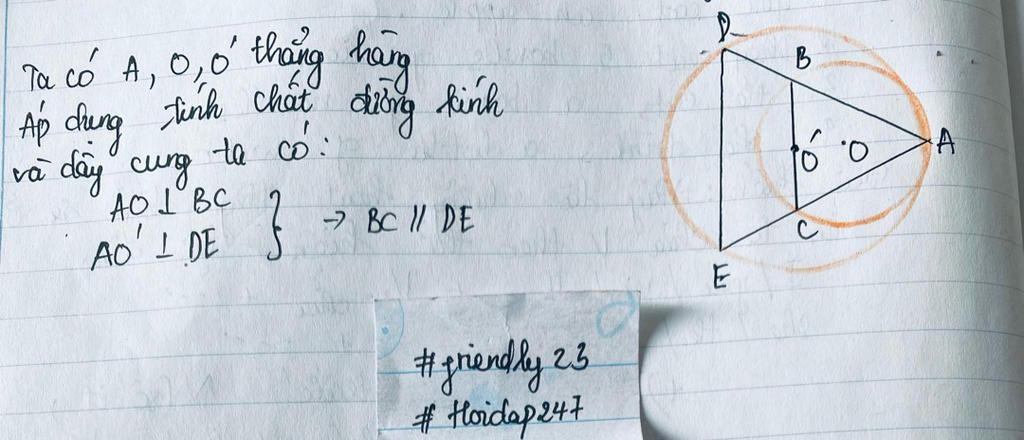 Ta có A, O, O' thẳng hàng
Áp dụng tính chất đường kính
và dây cung ta có:
AO ⊥ BC
AO' ⊥ DE } → BC // DE
D
B
A
O'
O
C
E
#friendly23
# Hoidap247